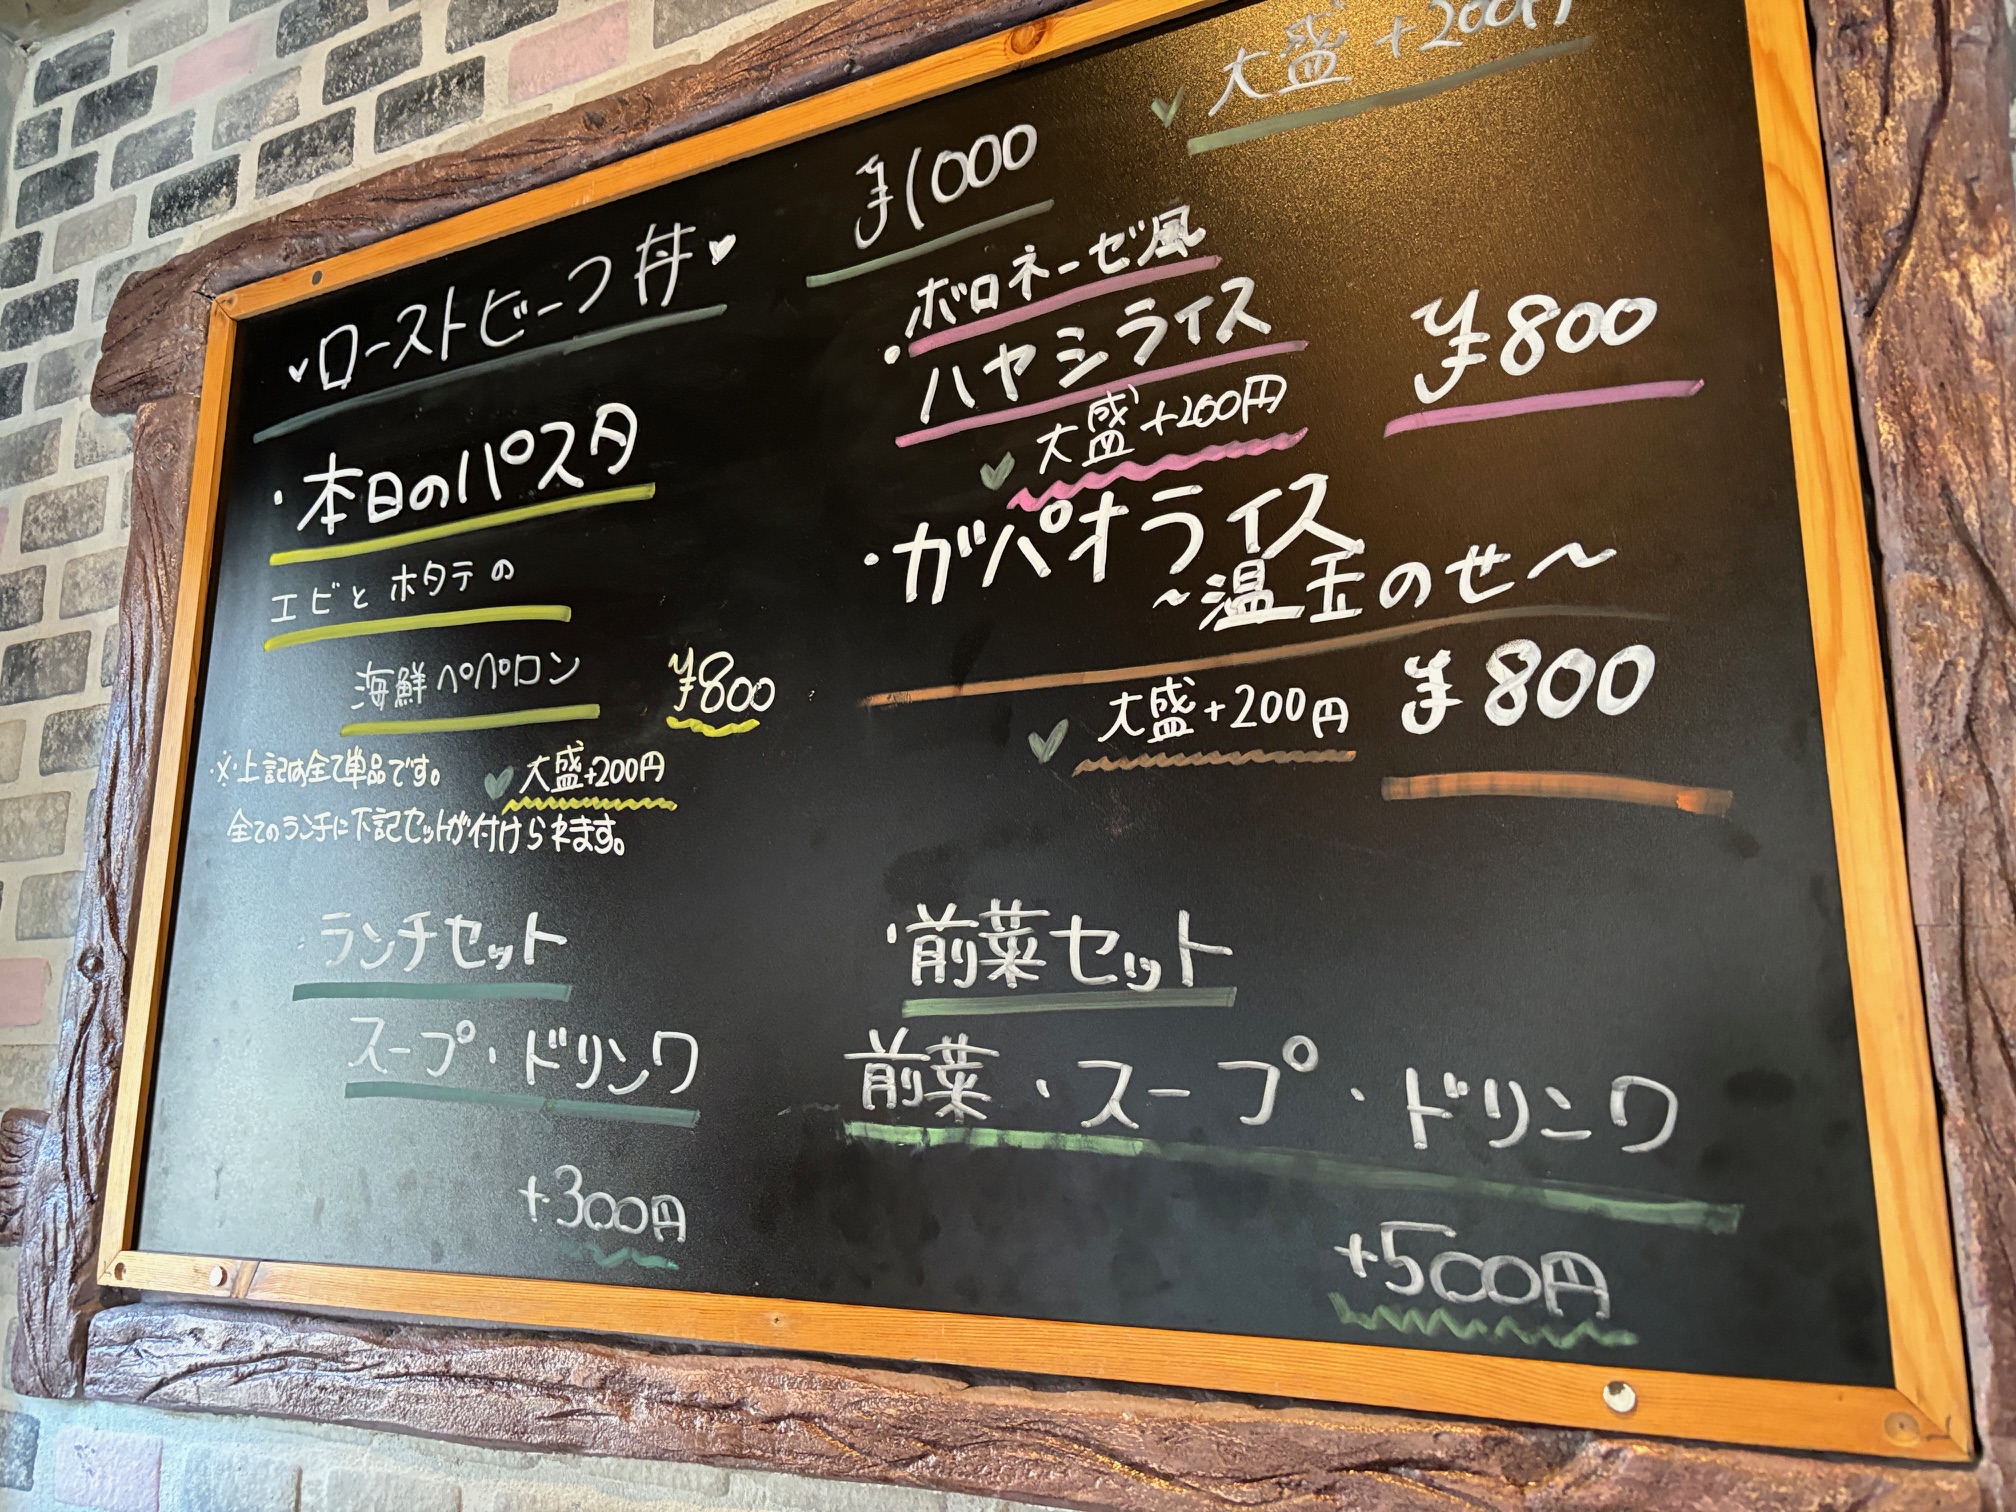 ローストビーフ丼 ¥1000
大盛 +200円
・本日のパスタ
エビとホタテの
海鮮ペペロン ¥800
大盛+200円
※上記は全て単品です。
全てのランチに下記セットが付けられます。
・ボロネーゼ風
ハヤシライス ¥800
大盛+200円
・ガパオライス
~温玉のせ~
大盛+200円 ¥800
・ランチセット
スープ・ドリンク
+300円
・前菜セット
前菜・スープ・ドリンク
+500円